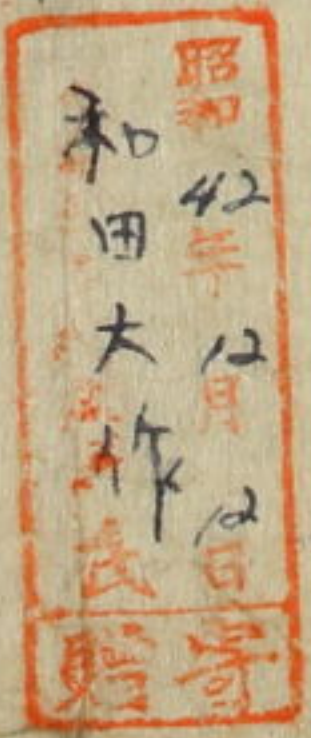 昭和42年12月12日
和田大作氏
寄贈